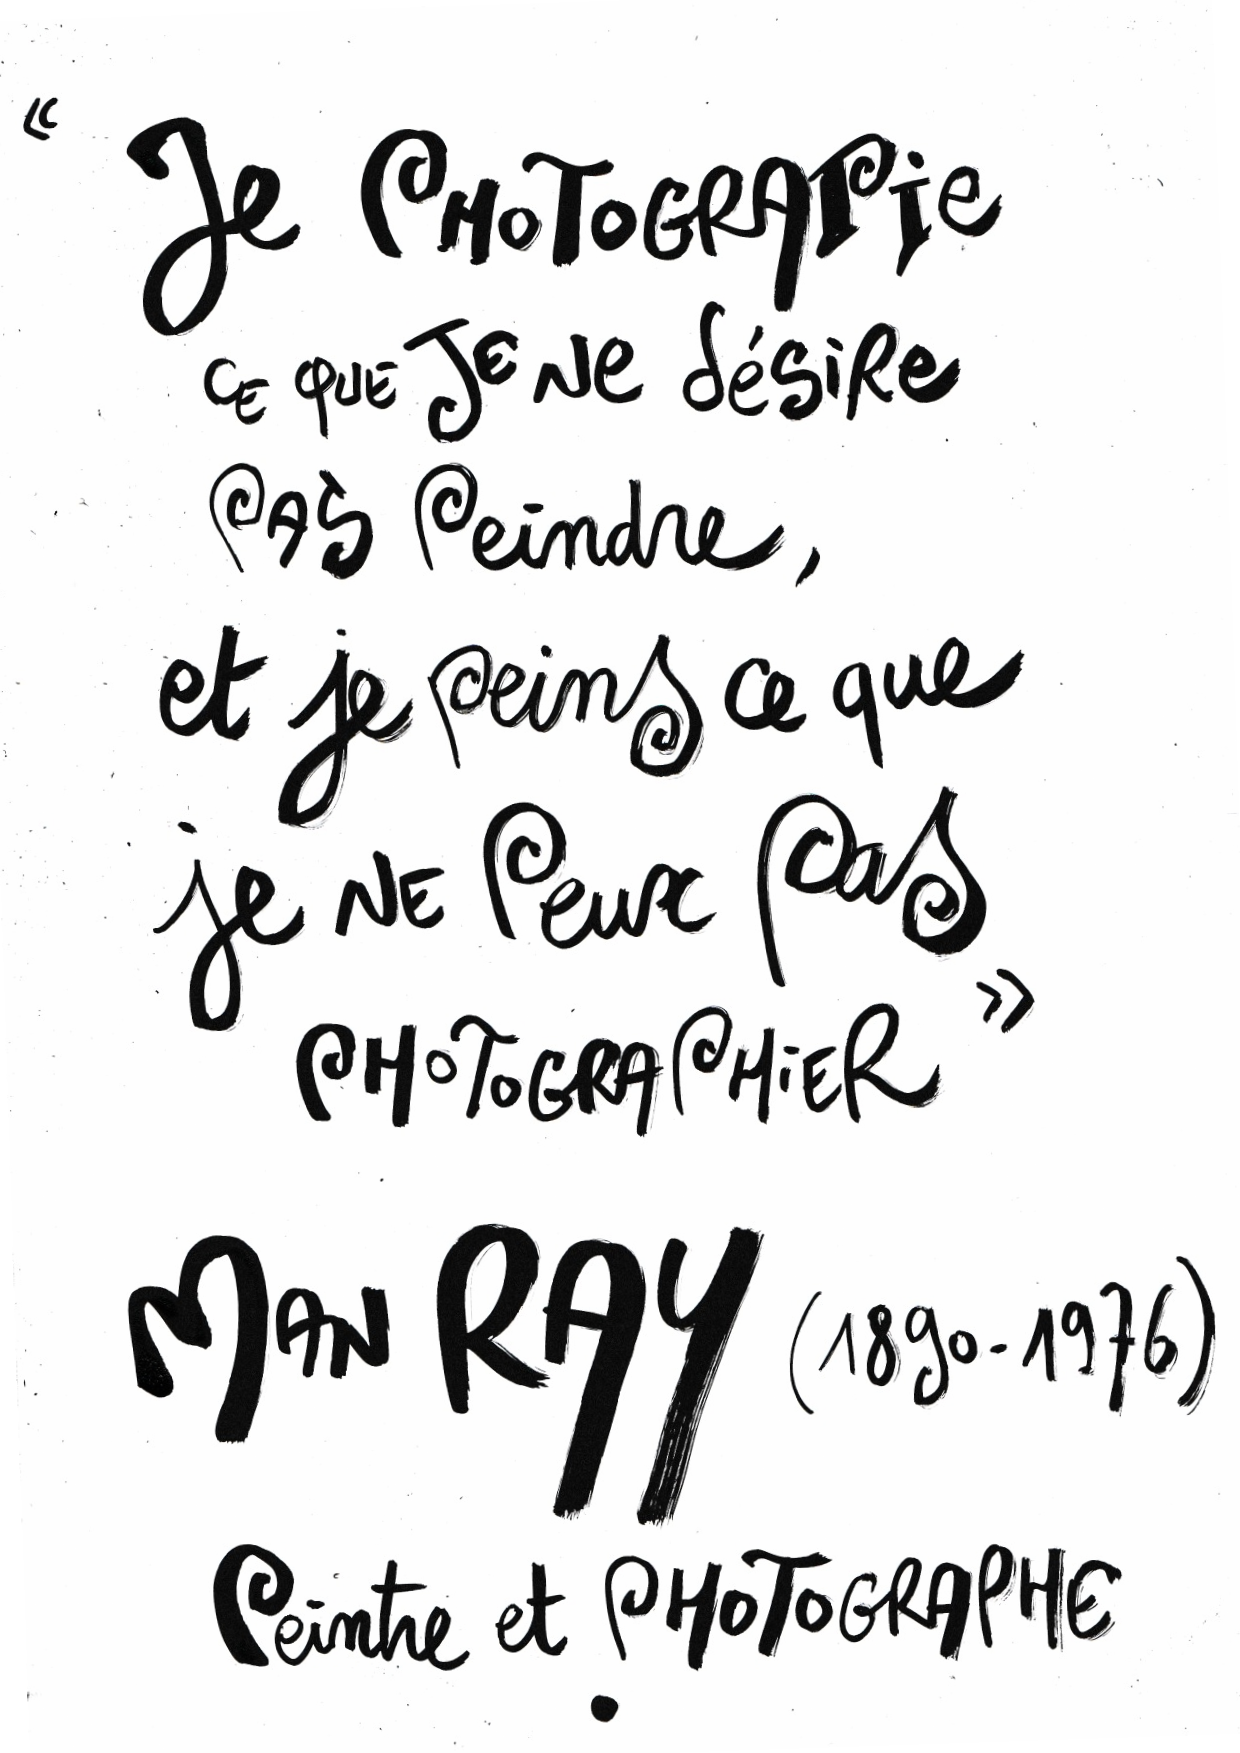 « Je PHOTOGRAPiE
CE QUE JE NE désiRe
PAS Peindre,
et je peins ce que
je NE Peux pas
PHOTOGRAPHiER »
MAN RAY (1890-1976)
Peintre et PHOTOGRAPHE
.